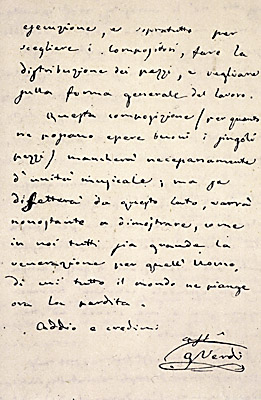 esecuzione, e sopratutto per
scegliere i compositori, fare la
distribuzione dei pezzi, e vegliare
sulla forma generale del lavoro.
Questa composizione (per quanto
ne possano essere buoni i singoli
pezzi) mancherà necessariamente
d'unità musicale; ma se
difetterà da questo lato, varrà
nonostante a dimostrare, come
in noi tutti sia grande la
venerazione per quell'Uomo,
di cui tutto il mondo ne piange
ora la perdita.
Addio e credimi
aff.
G Verdi